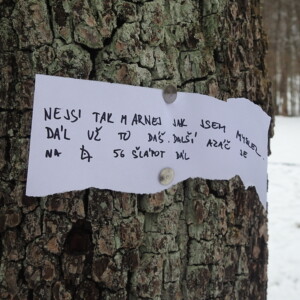 NEJSI TAK MARNEJ JAK JSEM MYSLEL.
DÁL UŽ TO DÁŠ. DALŠÍ AZAČ JE
NA 56 ŠLÁPOT DÁL